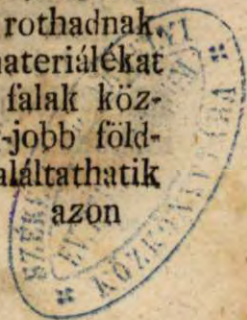 rothadnak
materiálékat
falak köz-
-jobb föld-
aláltathatik
azon
KÖZKÖNYVTÁRA